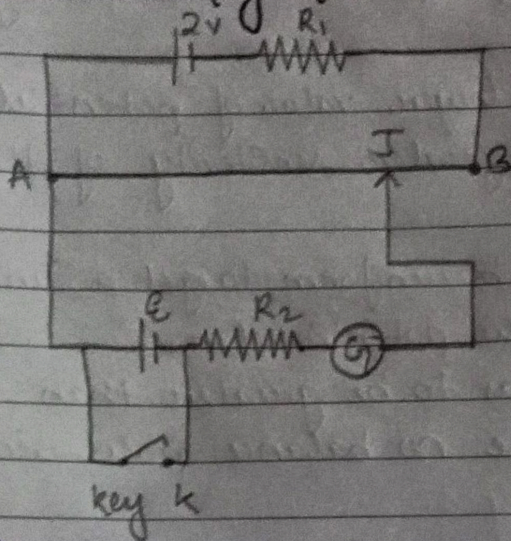 2v R1
J
A B
ε R2
G
key k